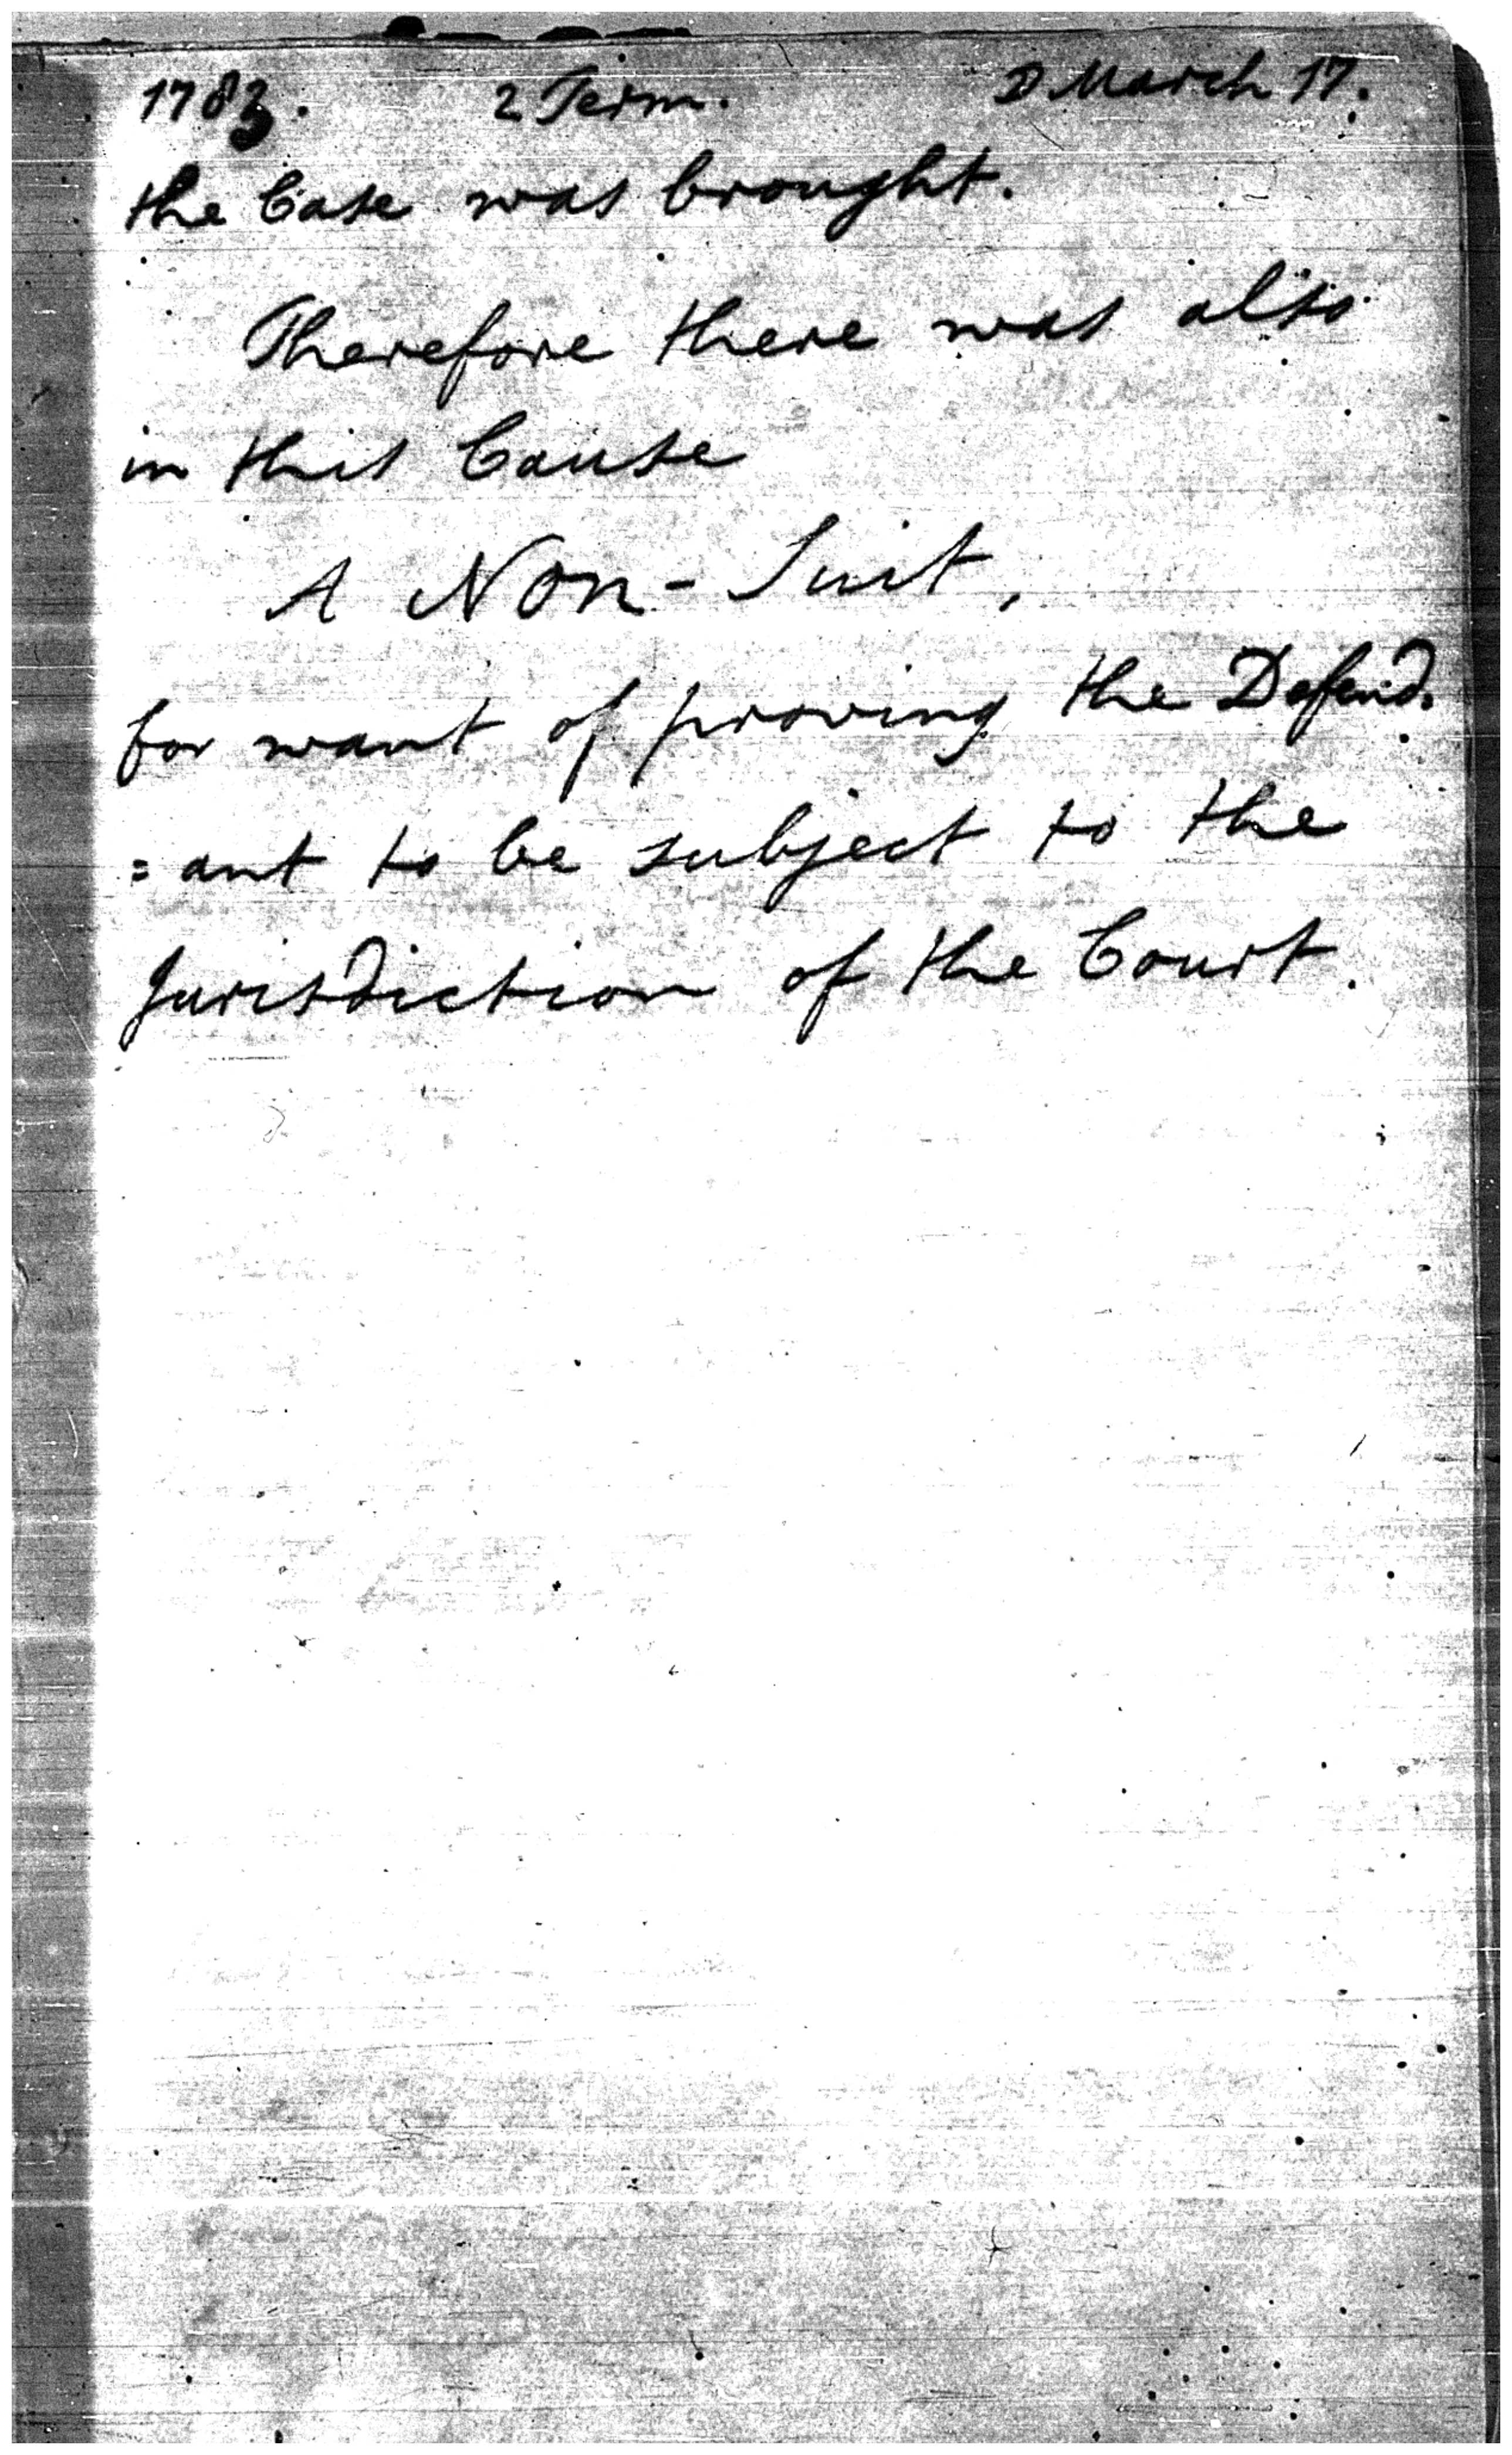 1783. 2 Term. D March 17.
the Case was brought.
Therefore there was also
in this Cause
A Non-Suit,
for want of proving the Defend.
=ant to be subject to the
Jurisdiction of the Court.